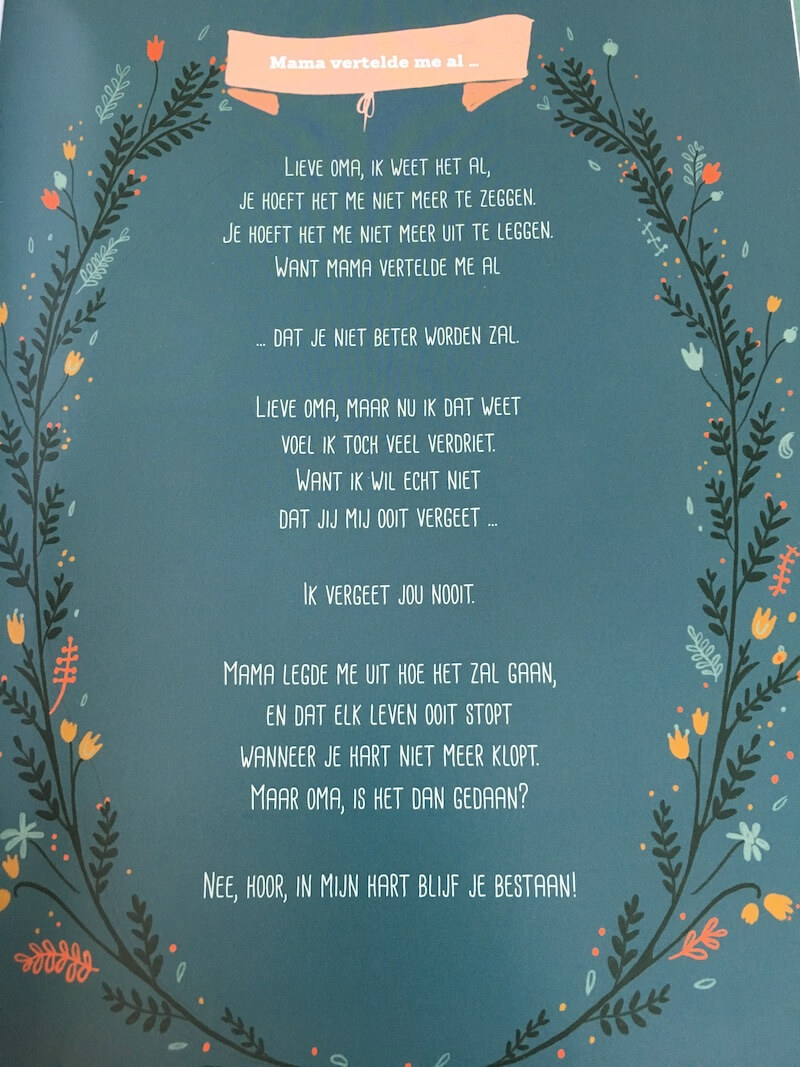 Mama vertelde me al ...
Lieve oma, ik weet het al,
je hoeft het me niet meer te zeggen.
Je hoeft het me niet meer uit te leggen.
Want mama vertelde me al
... dat je niet beter worden zal.
Lieve oma, maar nu ik dat weet
voel ik toch veel verdriet.
Want ik wil echt niet
dat jij mij ooit vergeet ...
Ik vergeet jou nooit.
Mama legde me uit hoe het zal gaan,
en dat elk leven ooit stopt
wanneer je hart niet meer klopt.
Maar oma, is het dan gedaan?
Nee, hoor, in mijn hart blijf je bestaan!